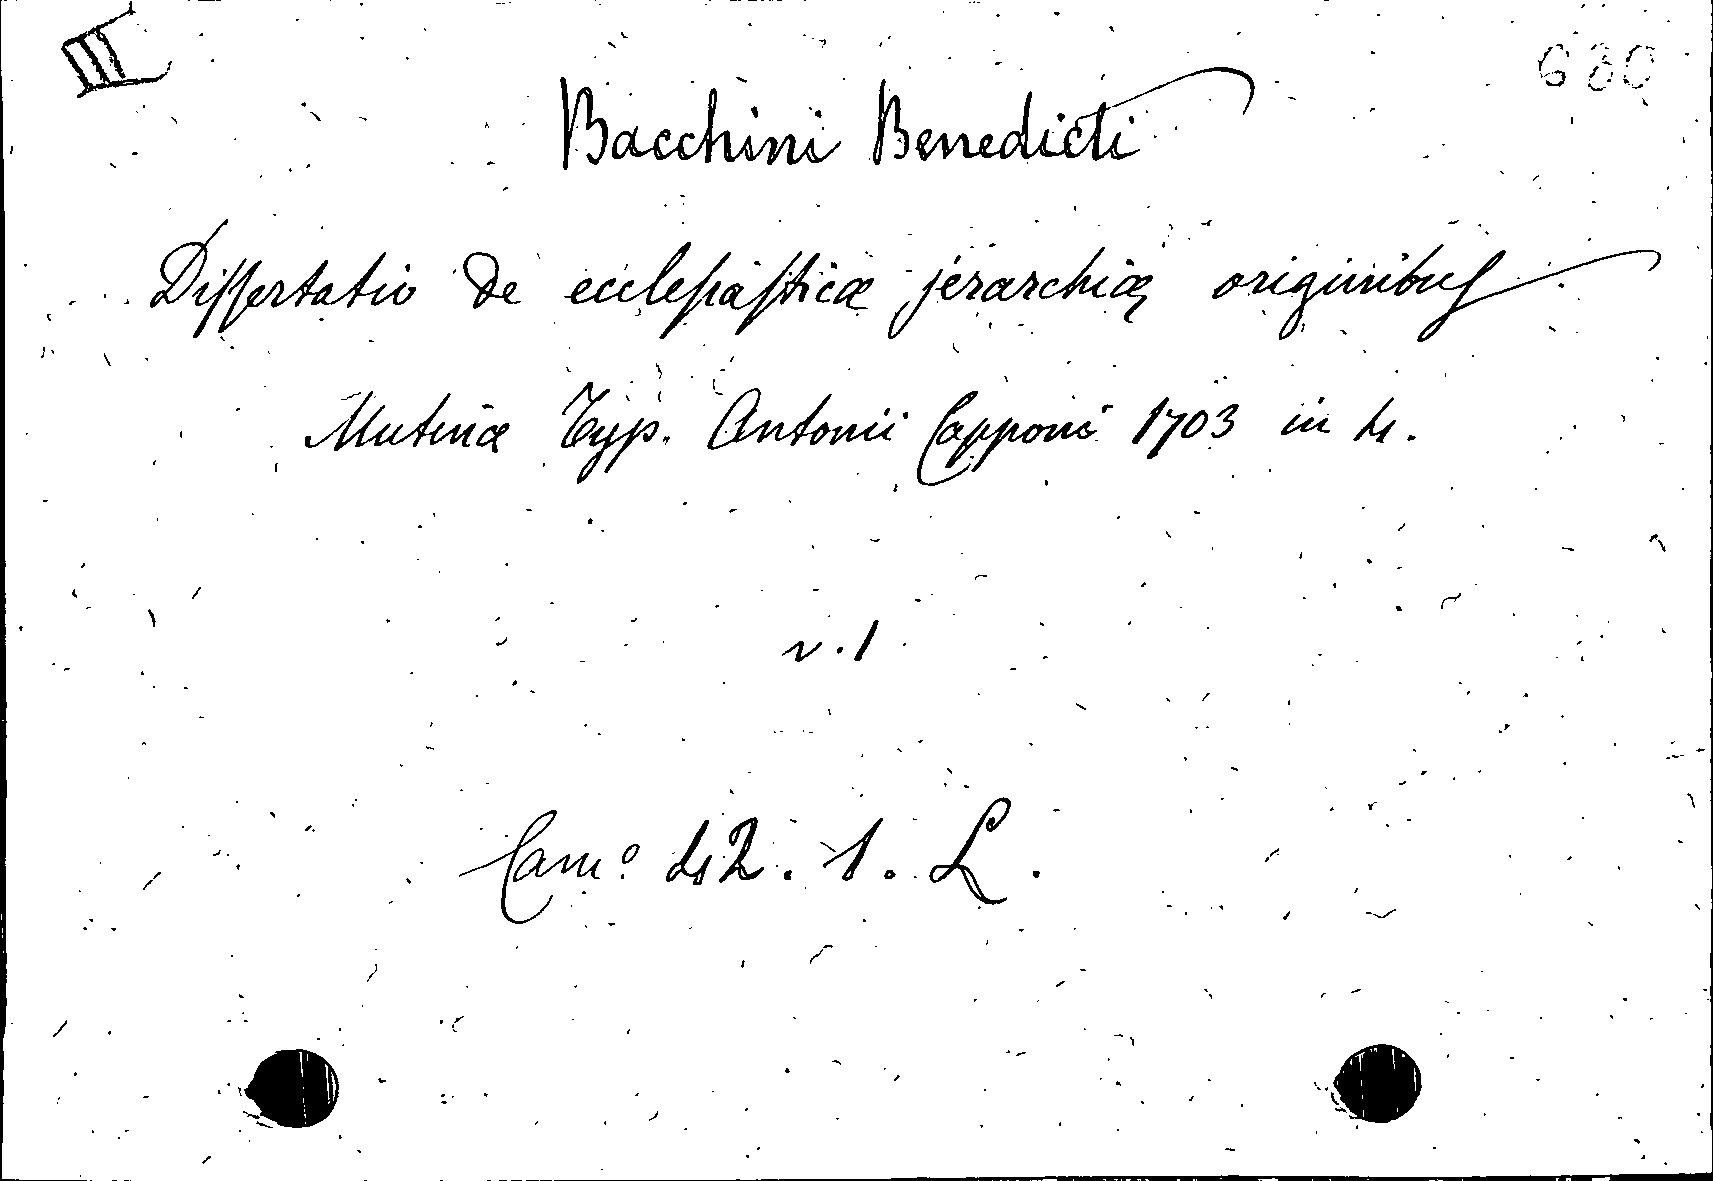 III
680
Bacchini Benedicti
Dissertatio de ecclesiasticæ jerarchiæ originibus
Mutinæ Typ. Antonii Capponi 1703 in 4.
v. 1
Cam.º 42. 1. L.